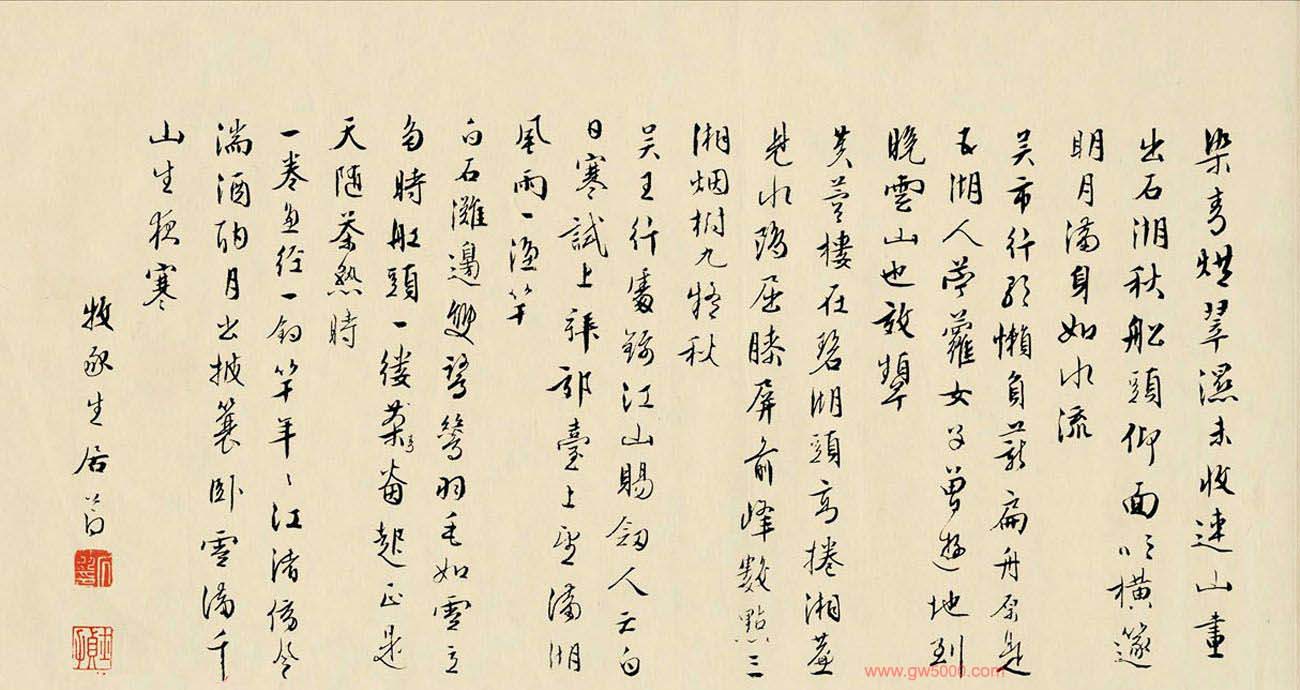 染青烘翠濕未收連山畫
出石湖秋船頭仰面吹橫篴
明月滿身如水流
吳市行歌懶負薪扁舟原是
五湖人苧蘿女子曾遊地到
晚雲山也效顰
樓在碧湖頭高捲湘簾
水屈膝屏前峰數點三
湘烟樹九疑秋
吳王行處錦江山賜劍人亡白
日寒試上拜郊臺上望滿湖
風雨一漁竿
白石灘邊雙鷺鷥羽毛如雪立
多時船頭一縷起正是
天隨茶熟時
一卷魚經一釣竿年〻江渚傍
湍酒酣月出披蓑臥雪滿千
山生夜寒
牧豕生居節
居節
士貞
www.gw5000.com